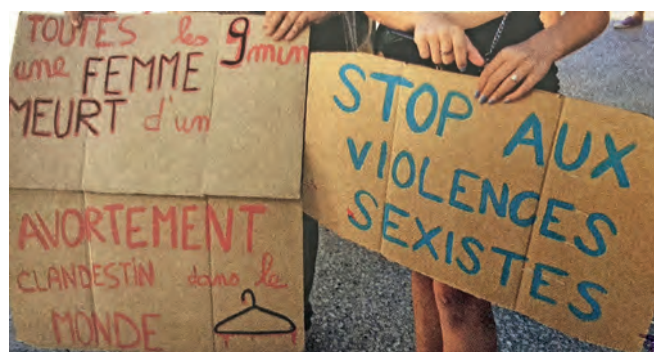 TOUTES les 9 min
une FEMME
MEURT d'un
AVORTEMENT
CLANDESTIN dans le
MONDE
STOP AUX
VIOLENCES
SEXISTES